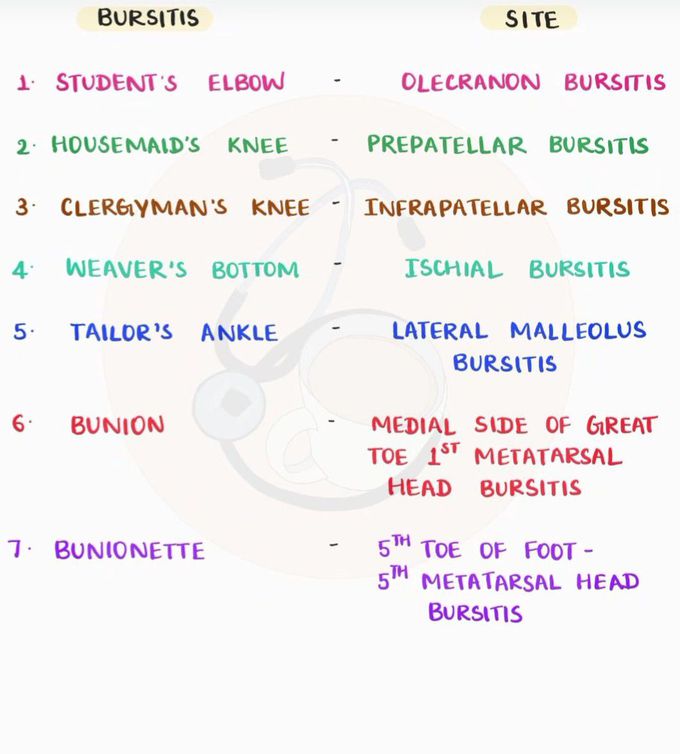 BURSITIS SITE
1. STUDENT'S ELBOW - OLECRANON BURSITIS
2. HOUSEMAID'S KNEE - PREPATELLAR BURSITIS
3. CLERGYMAN'S KNEE - INFRAPATELLAR BURSITIS
4. WEAVER'S BOTTOM - ISCHIAL BURSITIS
5. TAILOR'S ANKLE - LATERAL MALLEOLUS
BURSITIS
6. BUNION - MEDIAL SIDE OF GREAT
TOE 1ST METATARSAL
HEAD BURSITIS
7. BUNIONETTE - 5TH TOE OF FOOT -
5TH METATARSAL HEAD
BURSITIS